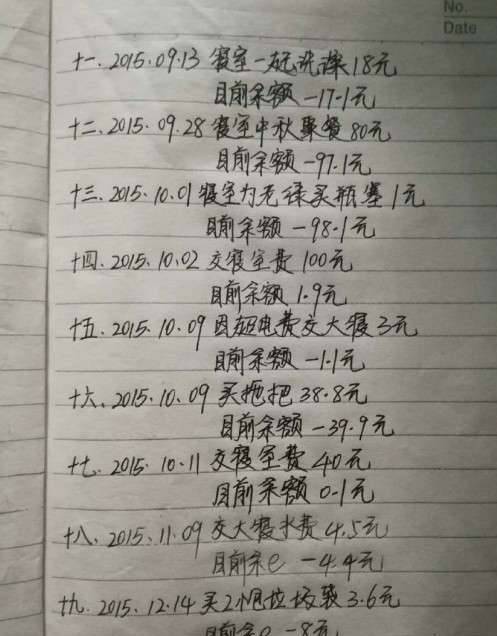 No.
Date
十一、2015.09.13 寝室一起洗澡18元
目前余额 -17.1元
十二、2015.09.28 寝室中秋聚餐80元
目前余额 -97.1元
十三、2015.10.01 寝室为无徐买瓶塞1元
目前余额 -98.1元
十四、2015.10.02 交寝室费100元
目前余额 1.9元
十五、2015.10.09 因超电费交大寝3元
目前余额 -1.1元
十六、2015.10.09 买拖把38.8元
目前余额 -39.9元
十七、2015.10.11 交寝室费40元
目前余额 0.1元
十八、2015.11.09 交大寝水费4.5元
目前余e -4.4元
十九、2015.12.14 买2小包垃圾袋3.6元
目前余e -8元